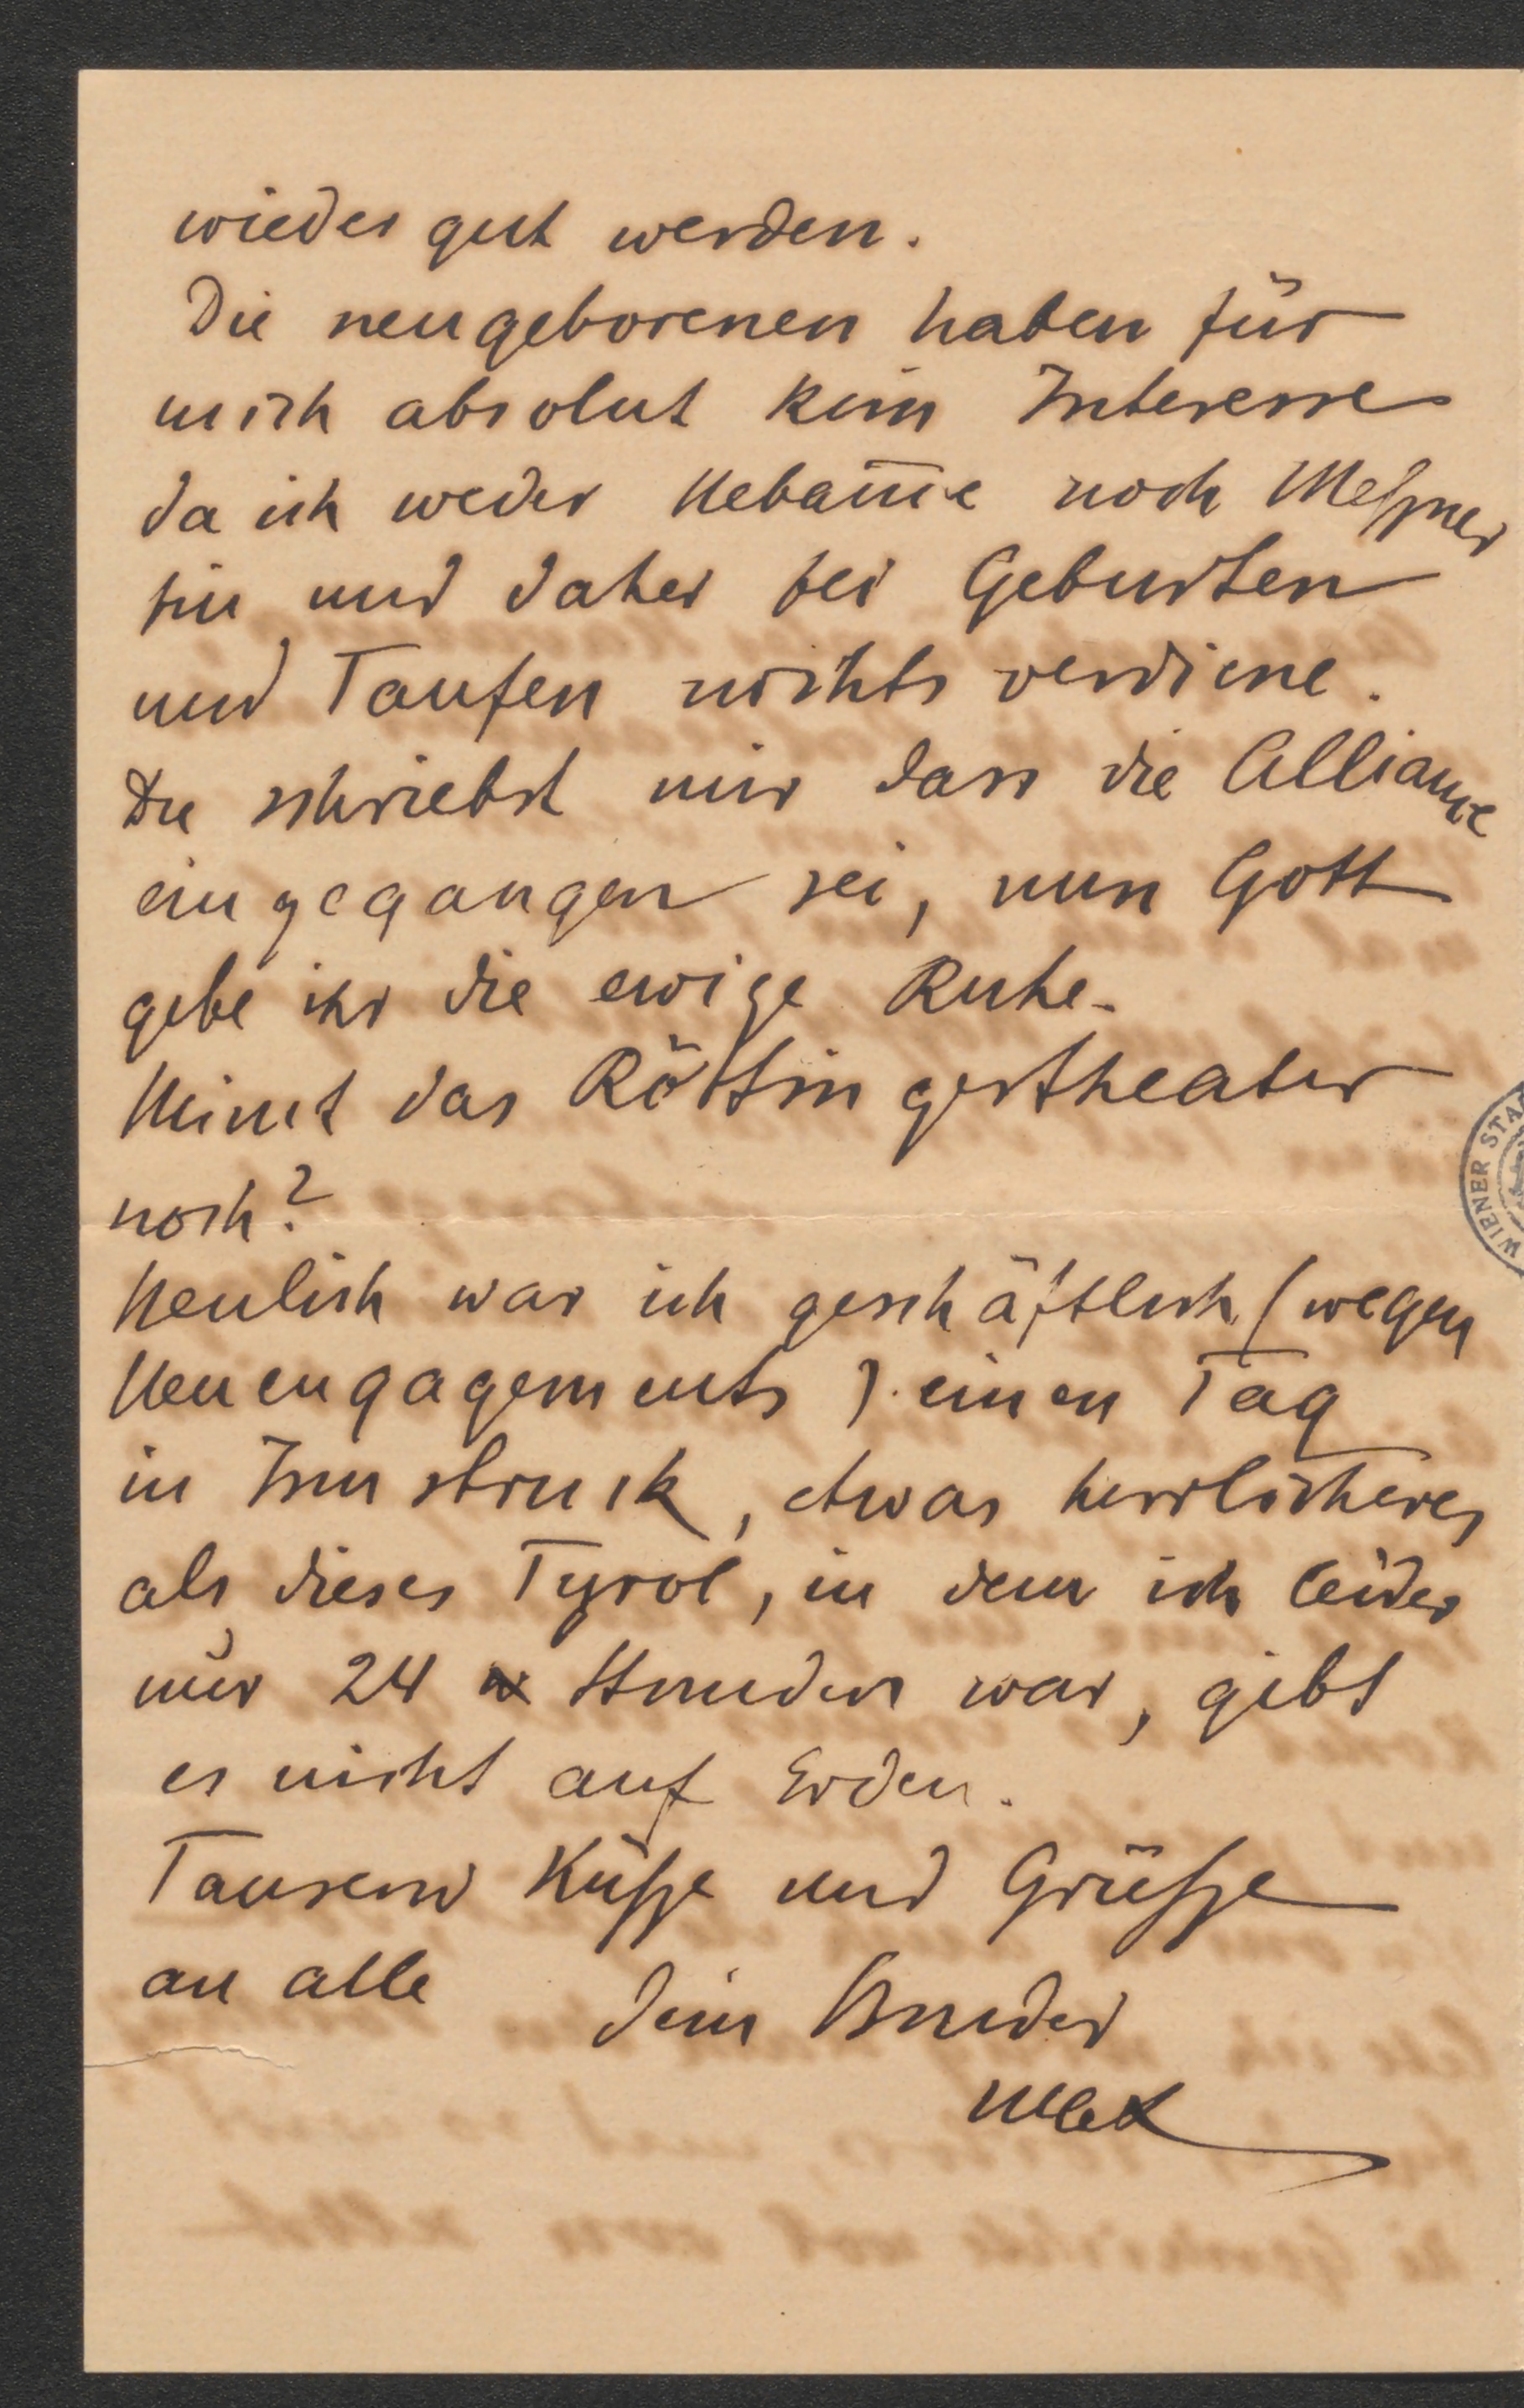 wieder gut werden.
Die neugeborenen haben für
mich absolut kein Interesse
da ich weder Hebam̅e noch Meßner
bin und daher bei Geburten
und Taufen nichts verdiene.
Du schriebst mir dass die Alliance
eingegangen sei, nun Gott
gebe ihr die ewige Ruhe.
Mimt das Röttingertheater
noch?
Neulich war ich geschäftlich (wegen
Neuengagements) einen Tag
in Insbruck, etwas herrlicheres
als dieses Tyrol, in dem ich leider
nur 24 Stunden war, gibt
es nicht auf Erden.
Tausend Küße und Grüße
an alle dein Bruder
WIENER STA